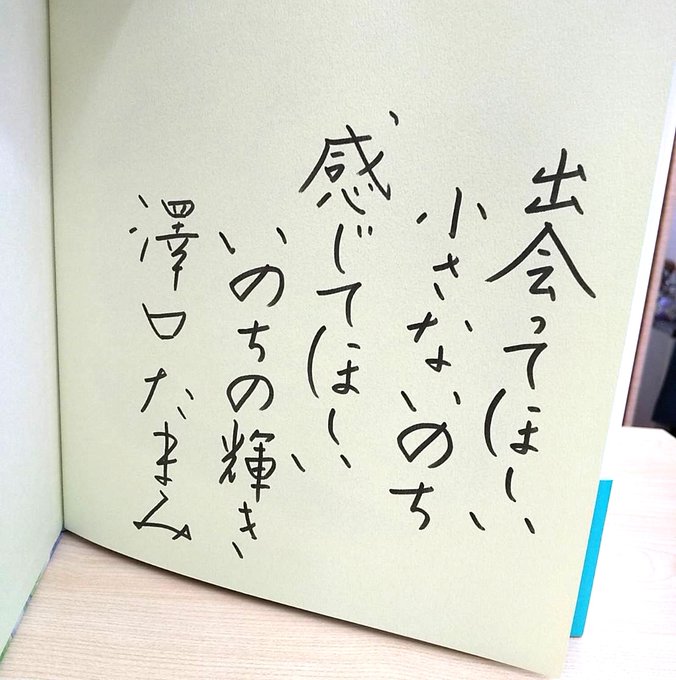 出会ってほしい
小さないのち
感じてほしい
いのちの輝き
澤口たまみ